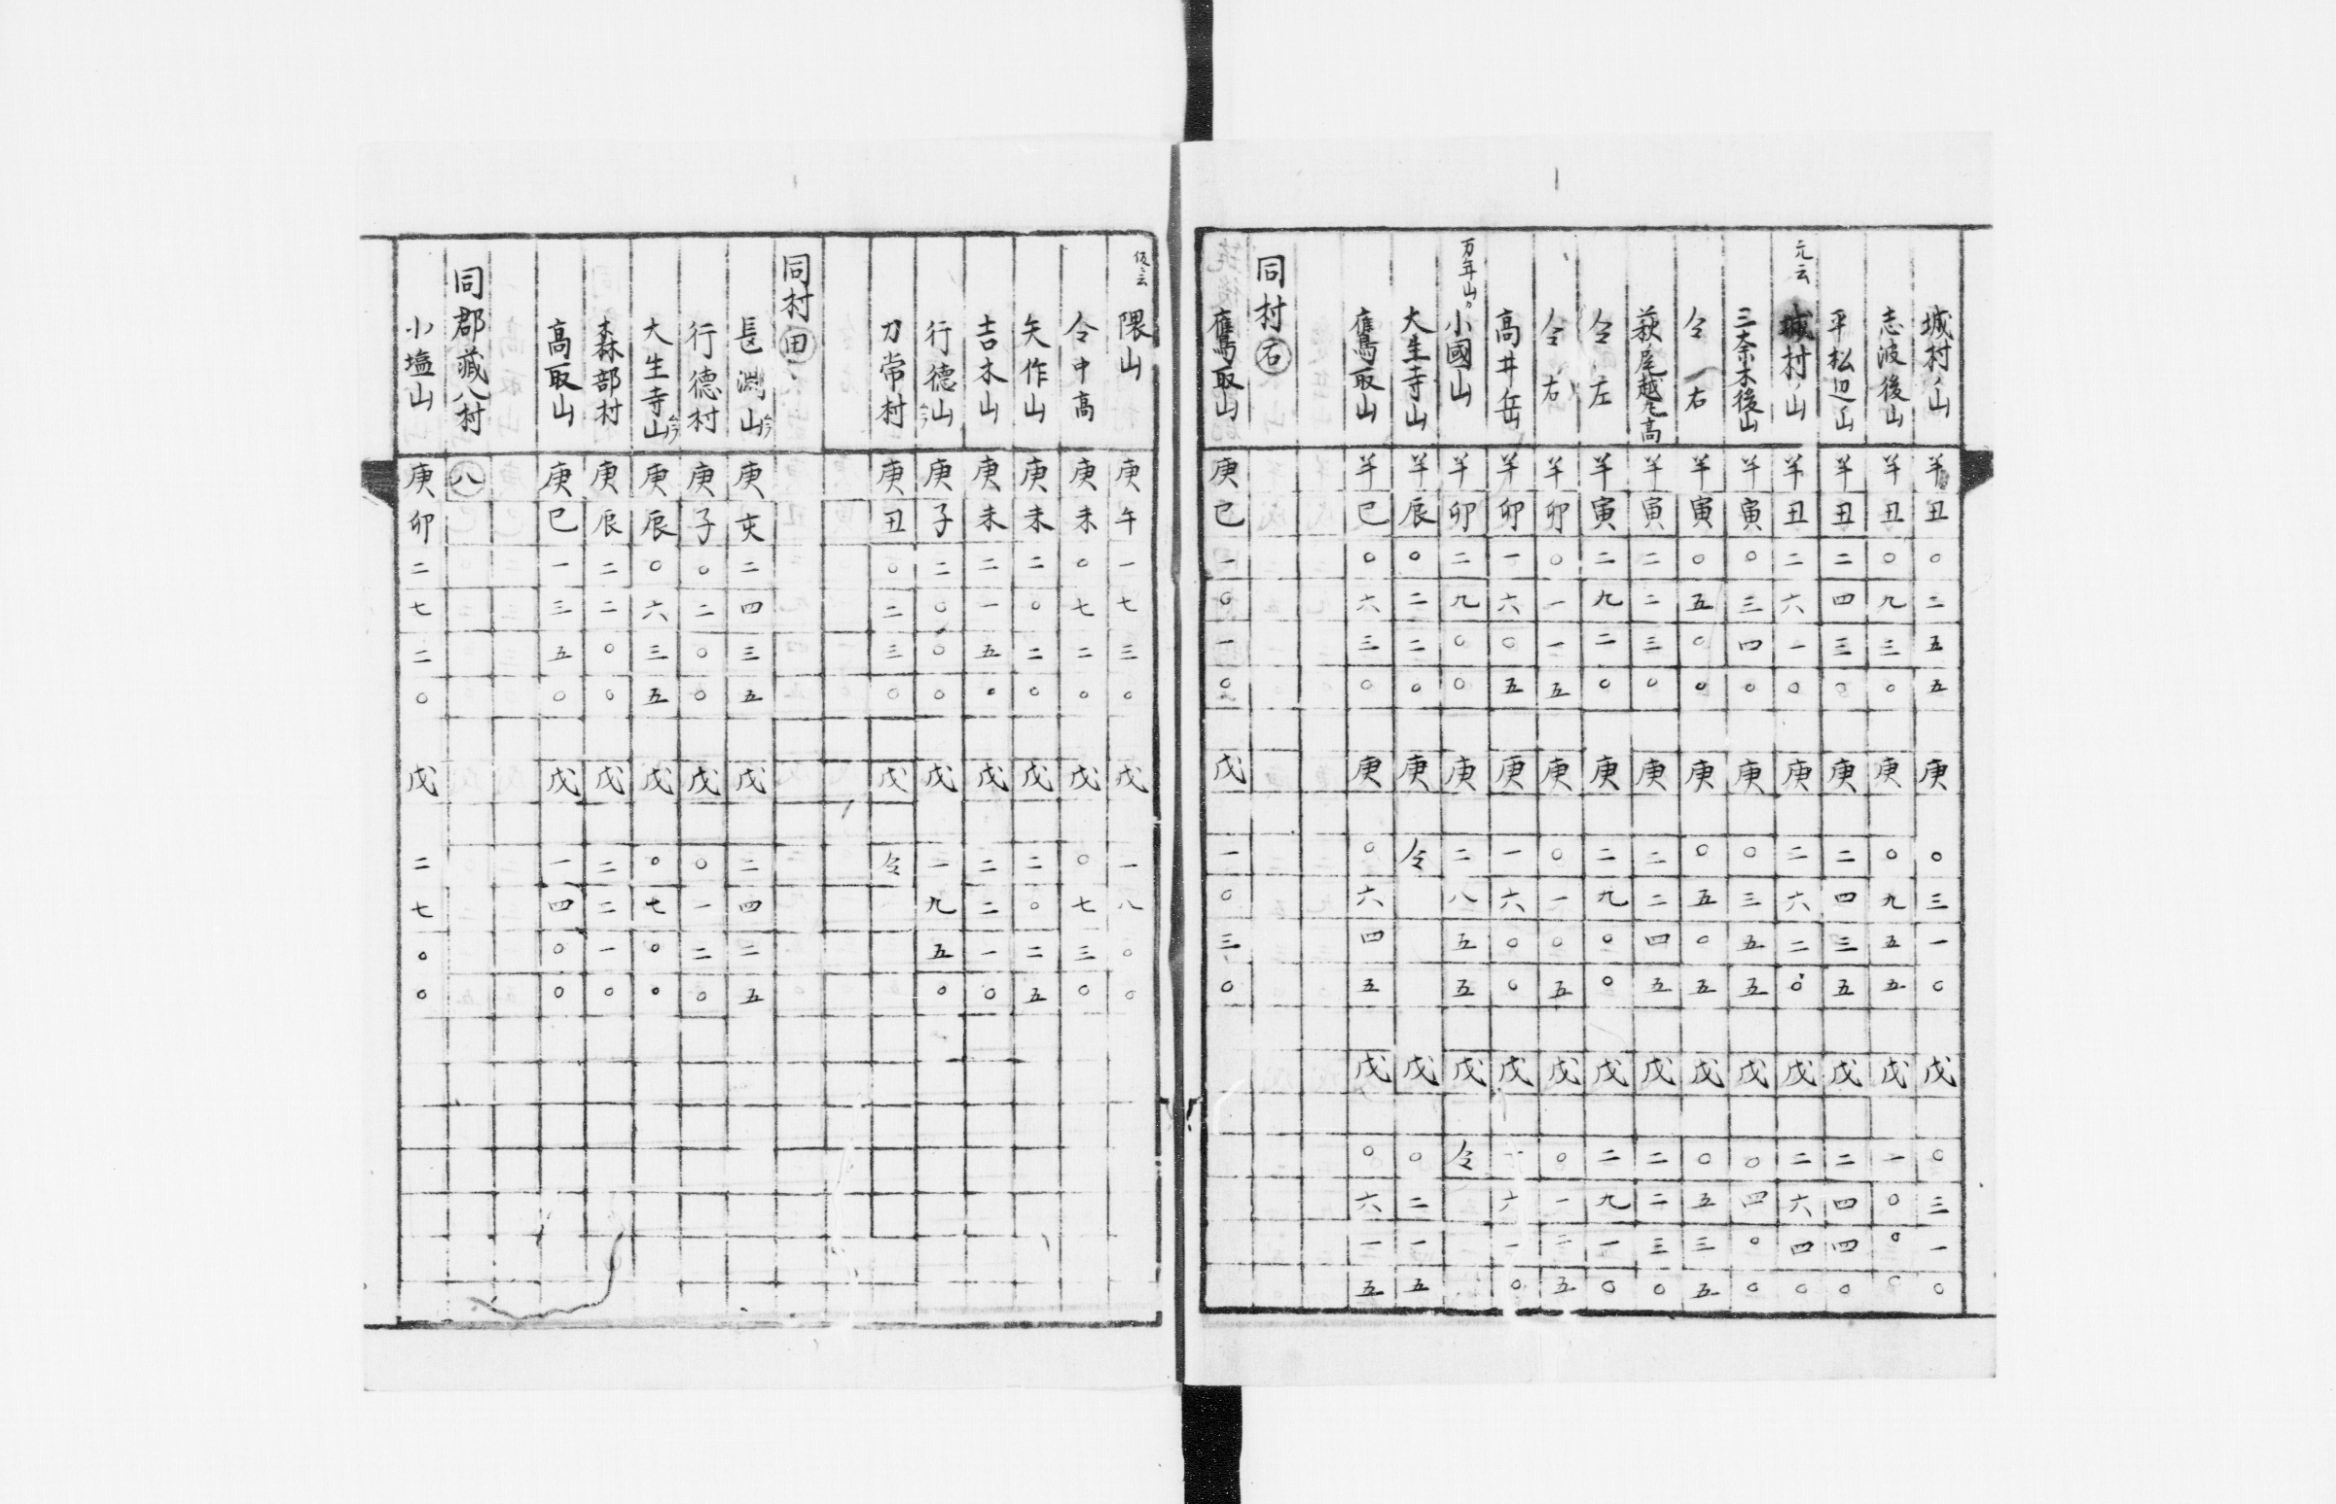 城村ノ山 羊丑〇三五五 庚〇三一〇 戊〇三一〇
志波後山 羊丑〇九三〇 庚〇九五五 戊一〇〇〇
平松辺ノ山 羊丑二四三〇 庚二四三五 戊二四四〇
元云 城村ノ山 羊丑二六一〇 庚二六二〇 戊二六四〇
三奈木後山 羊寅〇三四〇 庚〇三五五 戊〇四〇〇
仝 右 羊寅〇五〇〇 庚〇五〇五 戊〇五三五
萩尾越 高 羊寅二二三〇 庚二二四五 戊二二三〇
仝 左 羊寅二九二〇 庚二九〇〇 戊二九一〇
仝 右 羊卯〇一一五 庚〇一〇五 戊〇一二五
高井岳 羊卯一六〇五 庚一六〇〇 戊一六一〇
万年山 小國山 羊卯二九〇〇 庚二八五五 戊仝
大生寺山 羊辰〇二二〇 庚仝 戊〇二一五
鷹取山 羊巳〇六三〇 庚〇六四五 戊〇六一五
同村 石
鷹取山 庚巳一〇一〇 戊一〇三〇
隈山 庚午一七三〇 戊一八〇〇
仝中高 庚未〇七二〇 戊〇七三〇
矢作山 庚未二〇二〇 戊二〇二五
吉木山 庚未二一五〇 戊二二一〇
行德山 庚子二〇〇〇 戊一九五〇
刀常村 庚丑〇二三〇 戊仝
同村 田
長渕山 庚亥二四三五 戊二四二五
行德村 庚子〇二〇〇 戊〇一二〇
大生寺山 庚辰〇六三五 戊〇七〇〇
森部村 庚辰二二〇〇 戊二二一〇
高取山 庚巳一三五〇 戊一四〇〇
同郡蔵八村 八
小塩山 庚卯二七二〇 戊二七〇〇